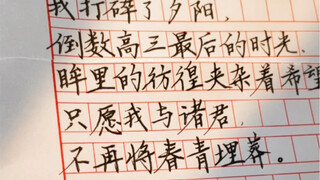 我打碎了夕阳,
倒数高三最后的时光.
眸里的彷徨夹杂着希望
只愿我与诸君,
不再将春青埋葬。